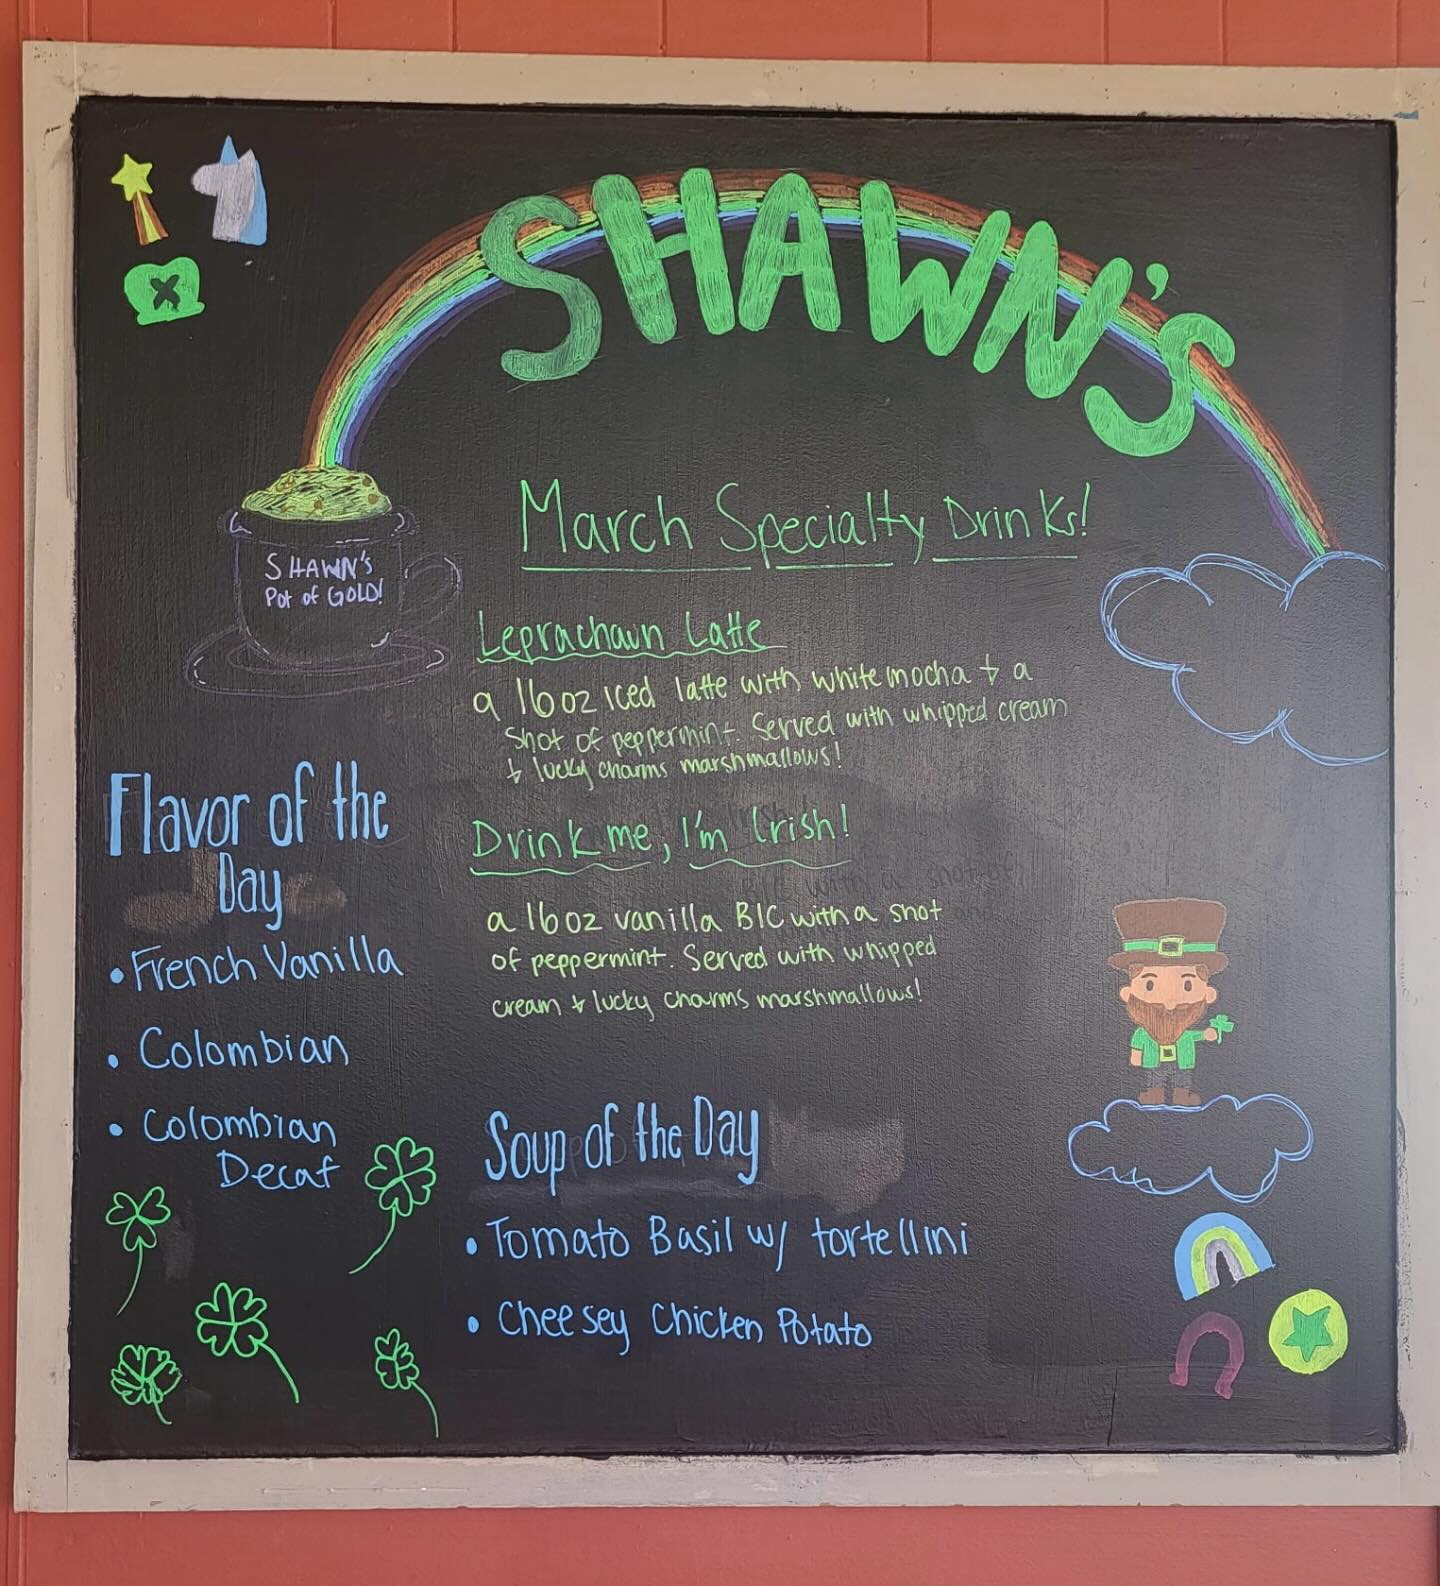 SHAWN'S
SHAWN'S
POT OF GOLD!
March Specialty Drinks!
Leprachaun Latte
a 16oz Iced latte with white mocha & a
shot of peppermint. Served with whipped cream
& lucky charms marshmallows!
Drink me, I'm Irish!
a 16oz vanilla BIC with a shot
of peppermint. Served with whipped
cream & lucky charms marshmallows!
Flavor of the
Day
• French Vanilla
• Colombian
• Colombian
Decaf
Soup of the Day
• Tomato Basil w/ tortellini
• Cheesey Chicken Potato